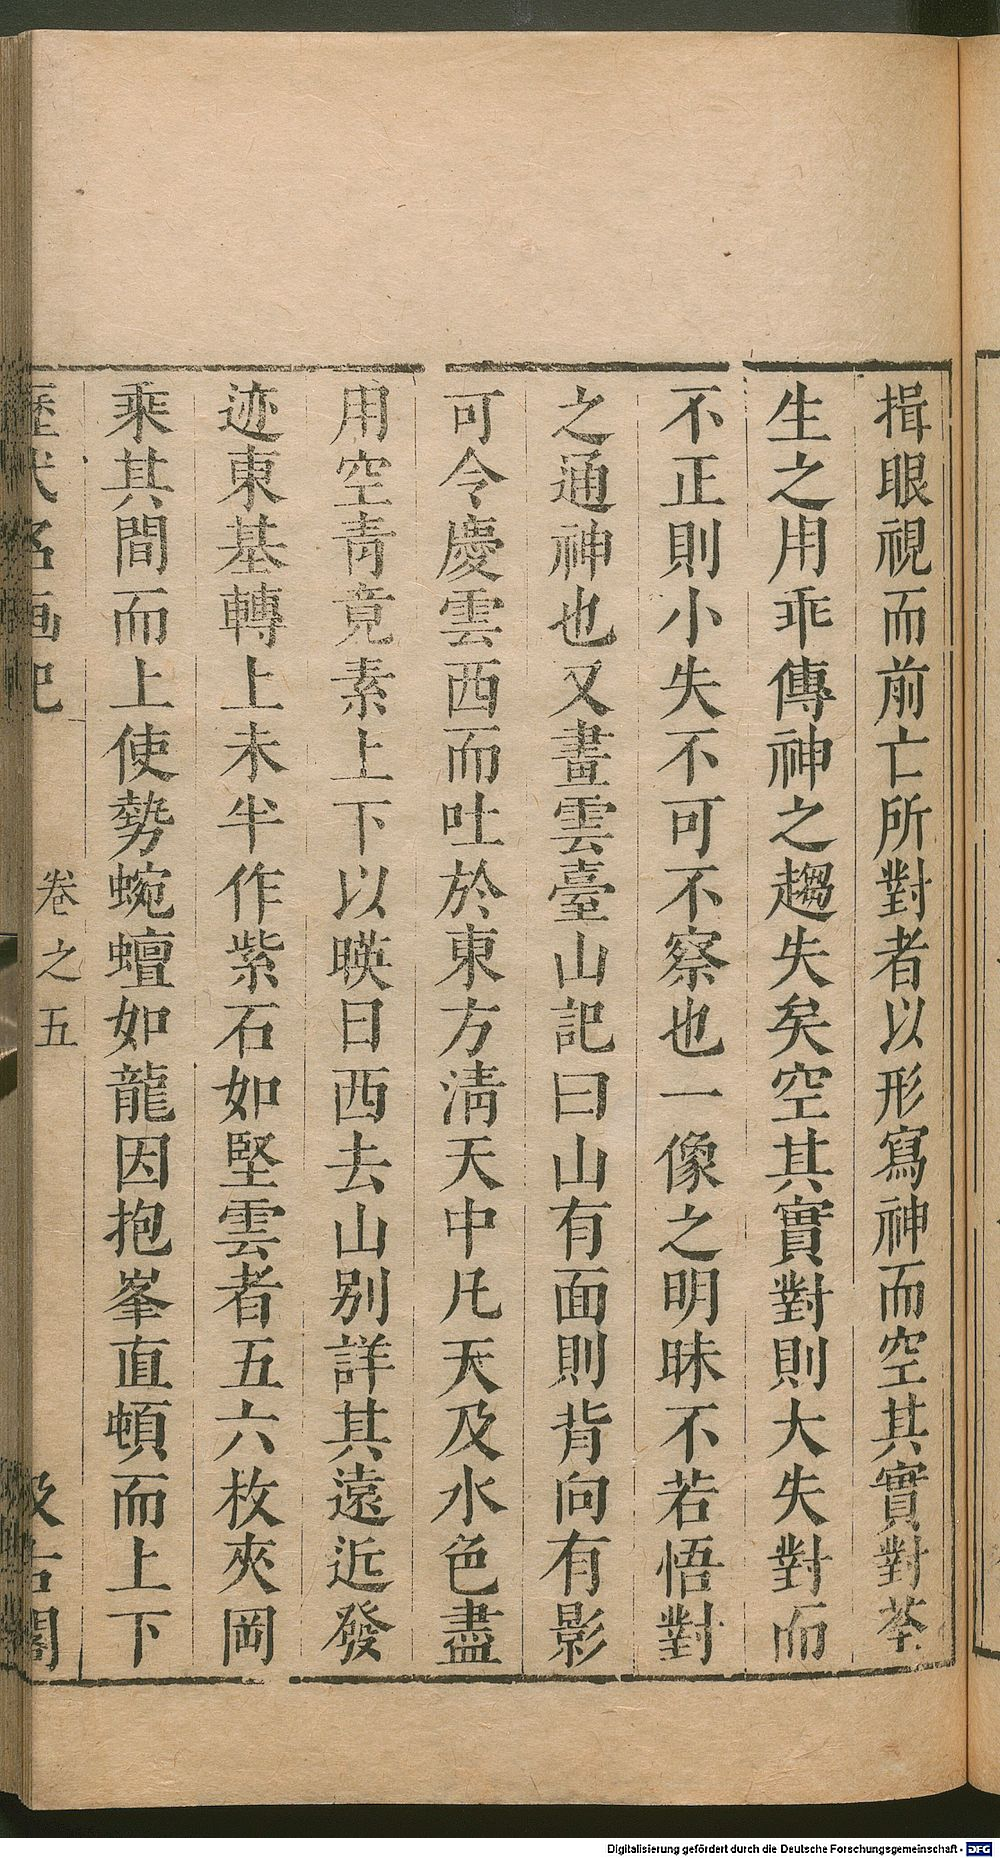 揖眼視而前亡所對者以形寫神而空其實對荃
生之用乖傳神之趨失矣空其實對則大失對而
不正則小失不可不察也一像之明昧不若悟對
之通神也又畫雲臺山記曰山有面則背向有影
可令慶雲西而吐於東方淸天中凡天及水色盡
用空靑竟素上下以暎日西去山別詳其遠近發
迹東基轉上未半作紫石如堅雲者五六枚夾岡
乘其間而上使勢蜿蟺如龍因抱峯直頓而上下
歷代名画記 卷之五 汲古閣
Digitalisierung gefördert durch die Deutsche Forschungsgemeinschaft - DFG